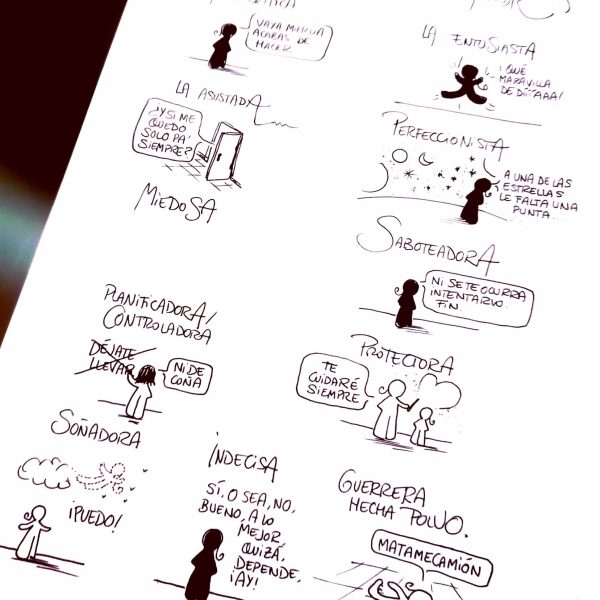 VAYA MIERDA
ACABAS DE
HACER
LA ENTUSIASTA
¡QUÉ
MARAVILLA
DE DÍÍÍAAA!
LA ASUSTADA
¿Y SI ME
QUEDO
SOLO PA'
SIEMPRE?
MIEDOSA
PERFECCIONISTA
A UNA DE LAS
ESTRELLAS
LE FALTA UNA
PUNTA.
SABOTEADORA
NI SE TE OCURRA
INTENTARLO.
FIN.
PLANIFICADORA/
CONTROLADORA
DÉJATE
LLEVAR
NI DE
COÑA
PROTECTORA
TE
CUIDARÉ
SIEMPRE
SOÑADORA
¡PUEDO!
INDECISA
SÍ, O SEA, NO,
BUENO, A LO
MEJOR
QUIZÁ,
DEPENDE,
¡AY!
GUERRERA
HECHA POLVO.
MATAMECAMIÓN